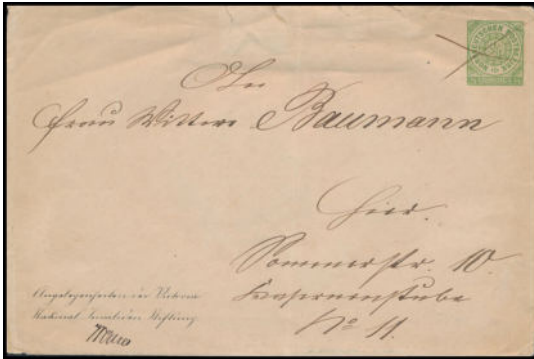 Der
Frau Wittwe Baumann
Hier.
Sommerstr. 10.
Kasernenstube
No 11.
Angelegenheiten der Victoria
National Invaliden Stiftung